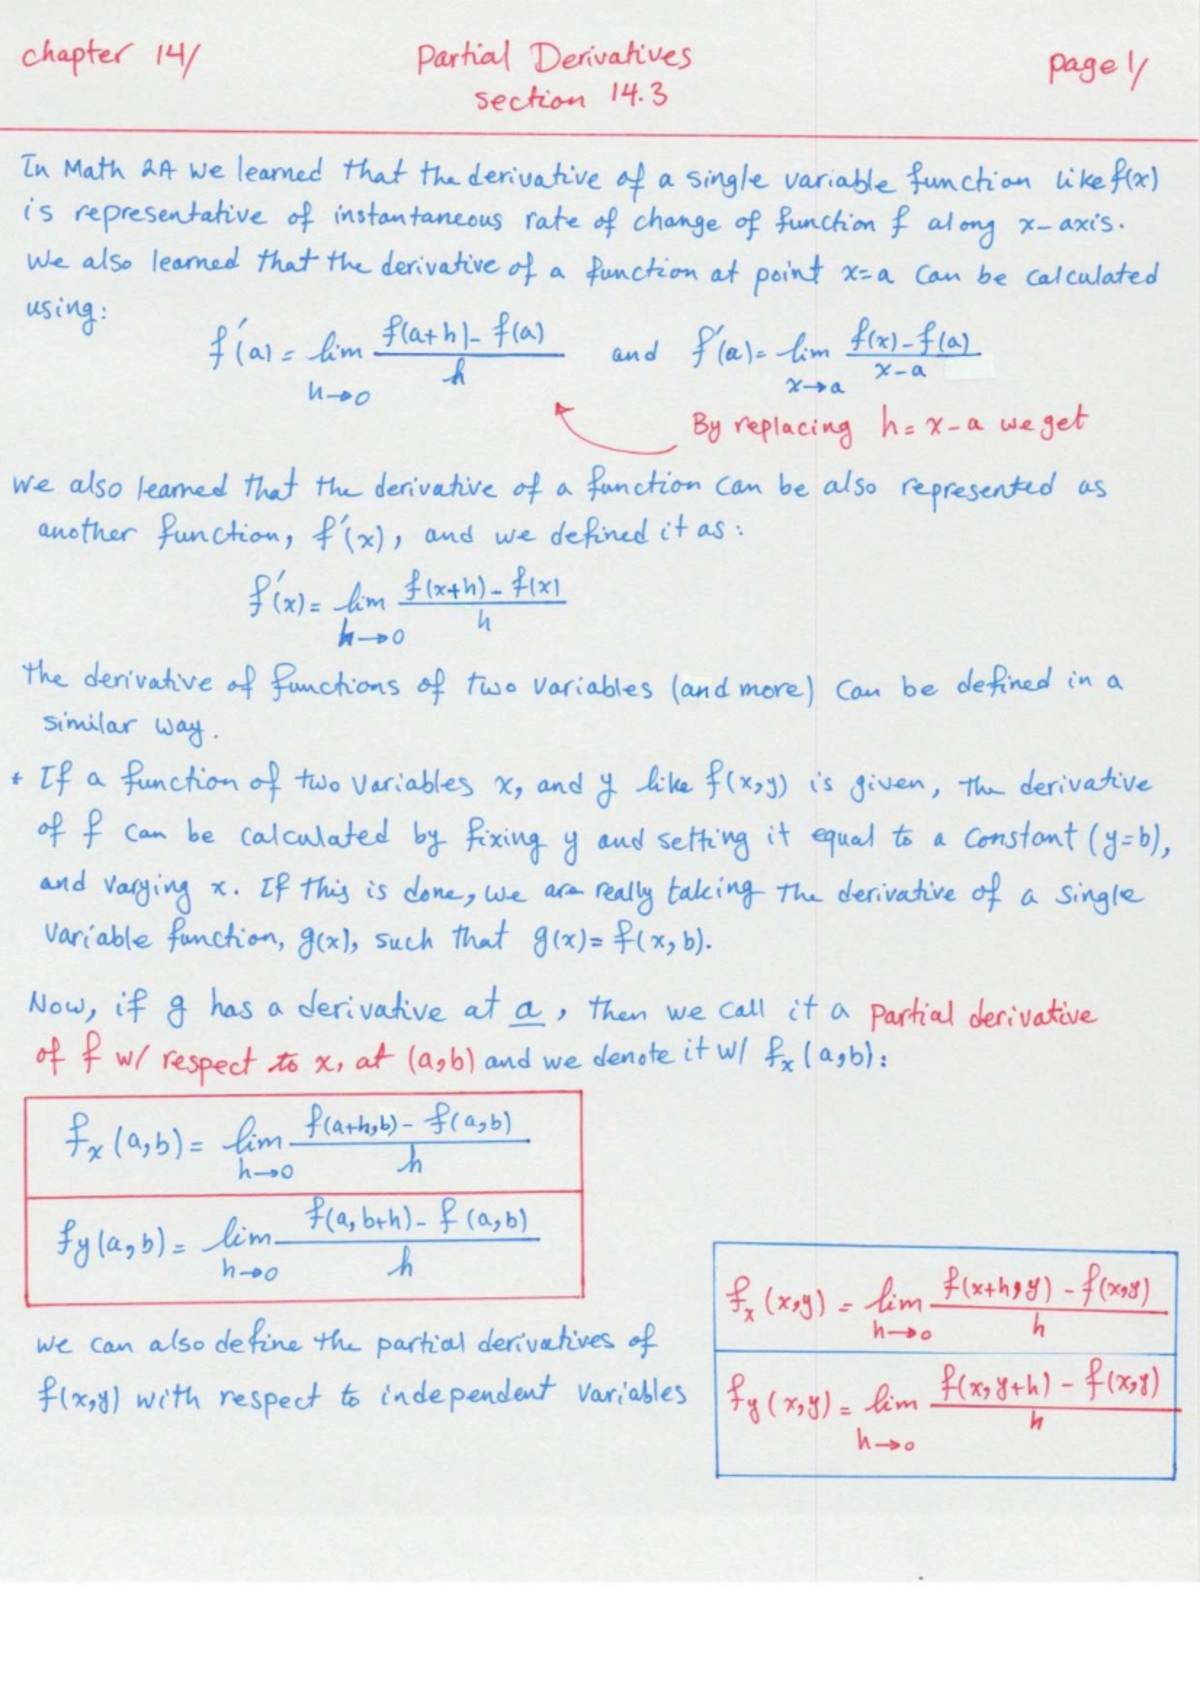 chapter 14/
Partial Derivatives
section 14.3
page 1/
In Math 2A we learned that the derivative of a single variable function like f(x)
is representative of instantaneous rate of change of function f along x-axis.
We also learned that the derivative of a function at point x=a can be calculated
using:
f'(a) = lim h→0 (f(a+h) - f(a))/h and f'(a) = lim x→a (f(x) - f(a))/(x-a)
By replacing h = x-a we get
We also learned that the derivative of a function can be also represented as
another function, f'(x), and we defined it as:
f'(x) = lim h→0 (f(x+h) - f(x))/h
The derivative of functions of two variables (and more) can be defined in a
similar way.
* If a function of two variables x, and y like f(x,y) is given, the derivative
of f can be calculated by fixing y and setting it equal to a constant (y=b),
and varying x. If this is done, we are really taking the derivative of a single
variable function, g(x), such that g(x) = f(x,b).
Now, if g has a derivative at a, then we call it a partial derivative
of f w/ respect to x, at (a,b) and we denote it w/ fx(a,b):
fx(a,b) = lim h→0 (f(a+h,b) - f(a,b))/h
fy(a,b) = lim h→0 (f(a,b+h) - f(a,b))/h
we can also define the partial derivatives of
f(x,y) with respect to independent variables
fx(x,y) = lim h→0 (f(x+h,y) - f(x,y))/h
fy(x,y) = lim h→0 (f(x,y+h) - f(x,y))/h